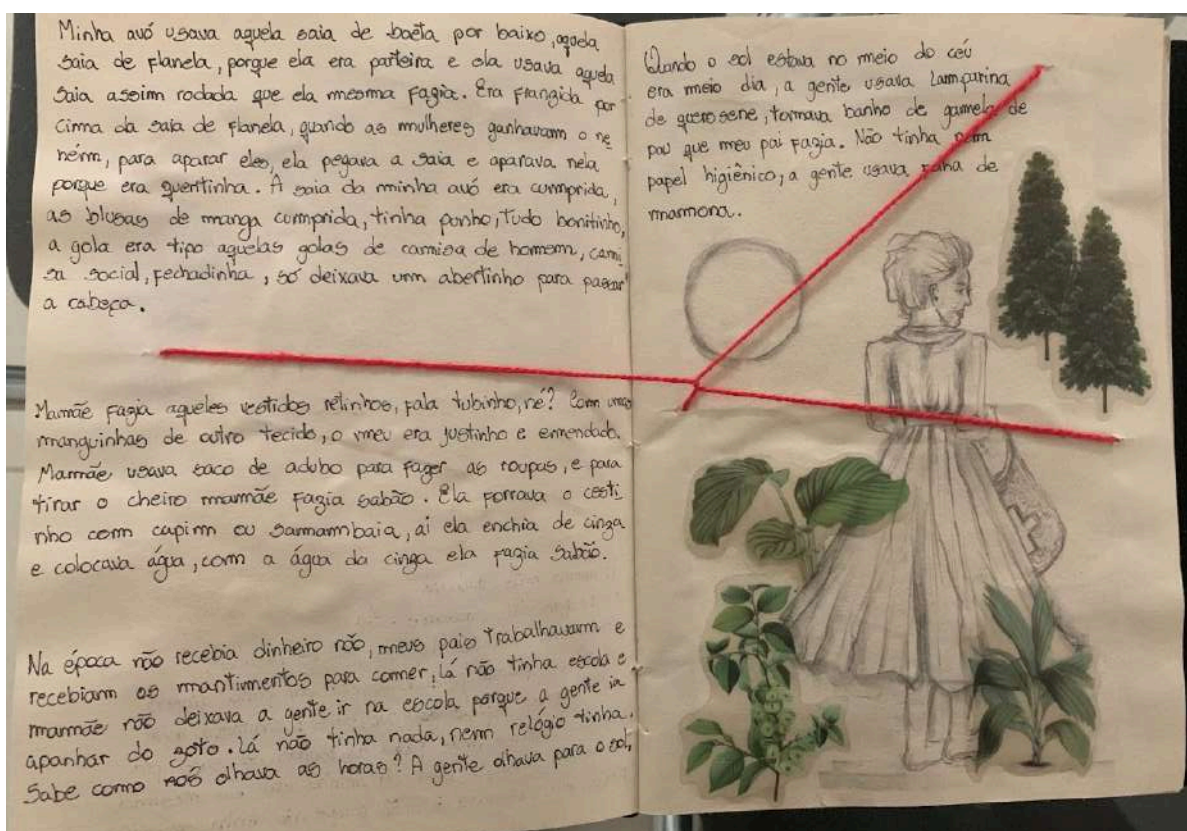 Minha avó usava aquela saia de baeta por baixo, aquela
saia de flanela, porque ela era parteira e ela usava aquela
saia assim rodada que ela mesma fazia. Era frangida por
cima da saia de flanela, quando as mulheres ganhavam o ne
ném, para aparar eles, ela pegava a saia e aparava nela
porque era quentinha. A saia da minha avó era cumprida,
as blusas de manga cumprida, tinha punho, tudo bonitinho,
a gola era tipo aquelas golas de camisa de homem, cami
sa social, fechadinha, só deixava um abertinho para passar
a cabeça.
Mamãe fazia aqueles vestidos retinhos, fala tubinho, né? Com umas
manguinhas de outro tecido, o meu era justinho e emendado.
Mamãe usava saco de adubo para fazer as roupas, e para
tirar o cheiro mamãe fazia sabão. Ela forrava o cesti
nho com capim ou samambaia, ai ela enchia de cinza
e colocava água, com a água da cinza ela fazia sabão.
Na época não recebia dinheiro não, meus pais trabalhavam e
recebiam os mantimentos para comer, lá não tinha escola e
mamãe não deixava a gente ir na escola porque a gente ia
apanhar do goto. Lá não tinha nada, nem relógio tinha.
Sabe como nós olhava as horas? A gente olhava para o sol,
Quando o sol estava no meio do céu
era meio dia, a gente usava lamparina
de querosene, tomava banho de gamela de
pau que meu pai fazia. Não tinha nem
papel higiênico, a gente usava folha de
mamona.